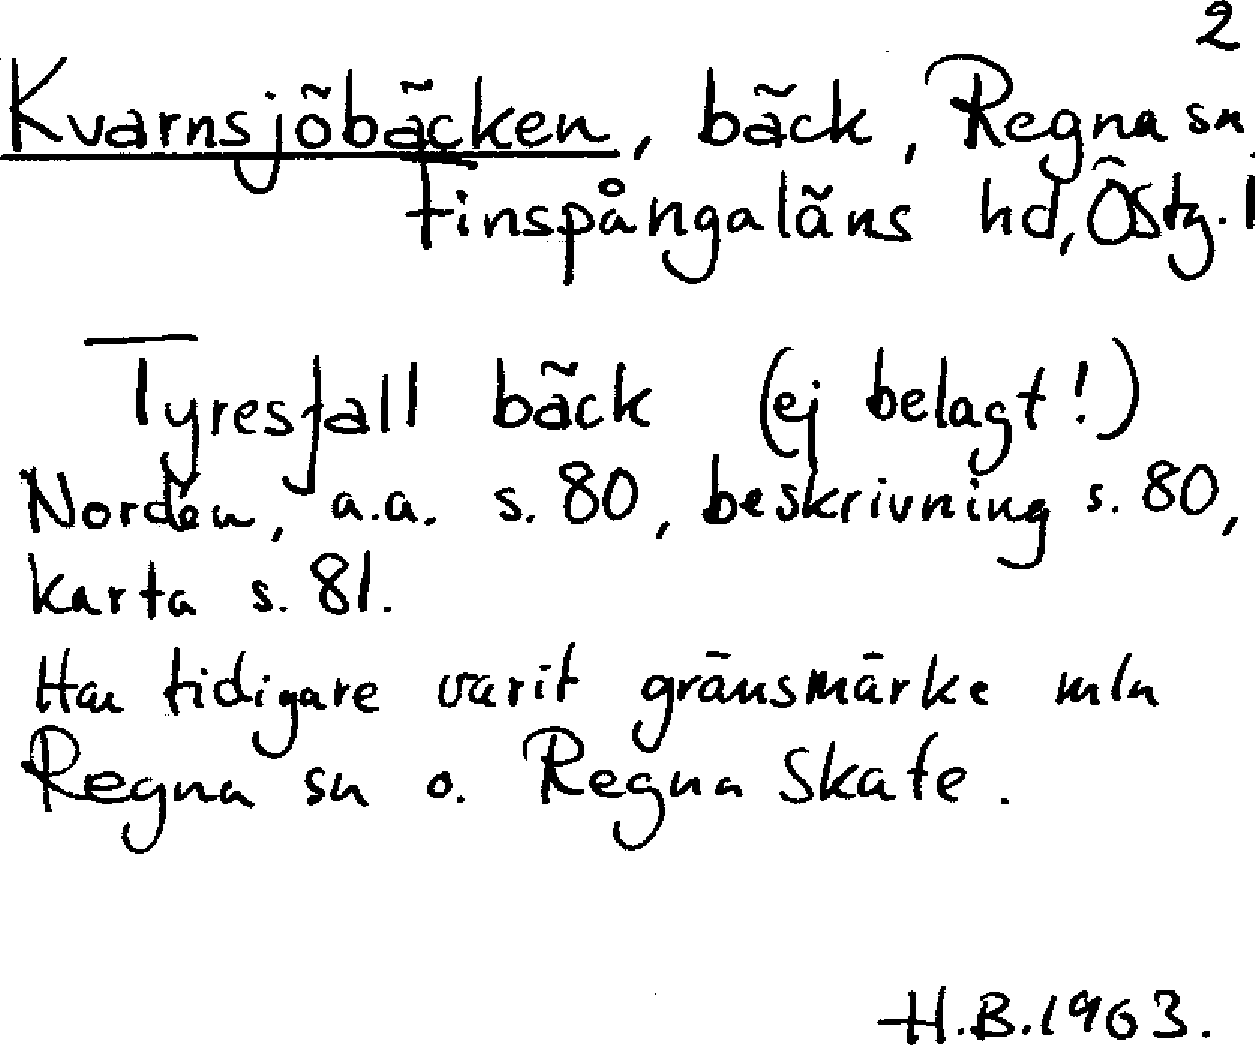 2
Kvarnsjöbäcken, bäck, Regna sn,
Finspångaläns hd, Östg. l
Tyresfall bäck (ej belagt!)
Nordén, a.a. s. 80, beskrivning s. 80,
karta s. 81.
Har tidigare varit gränsmärke mln
Regna sn o. Regna Skate.
H.B. 1963.